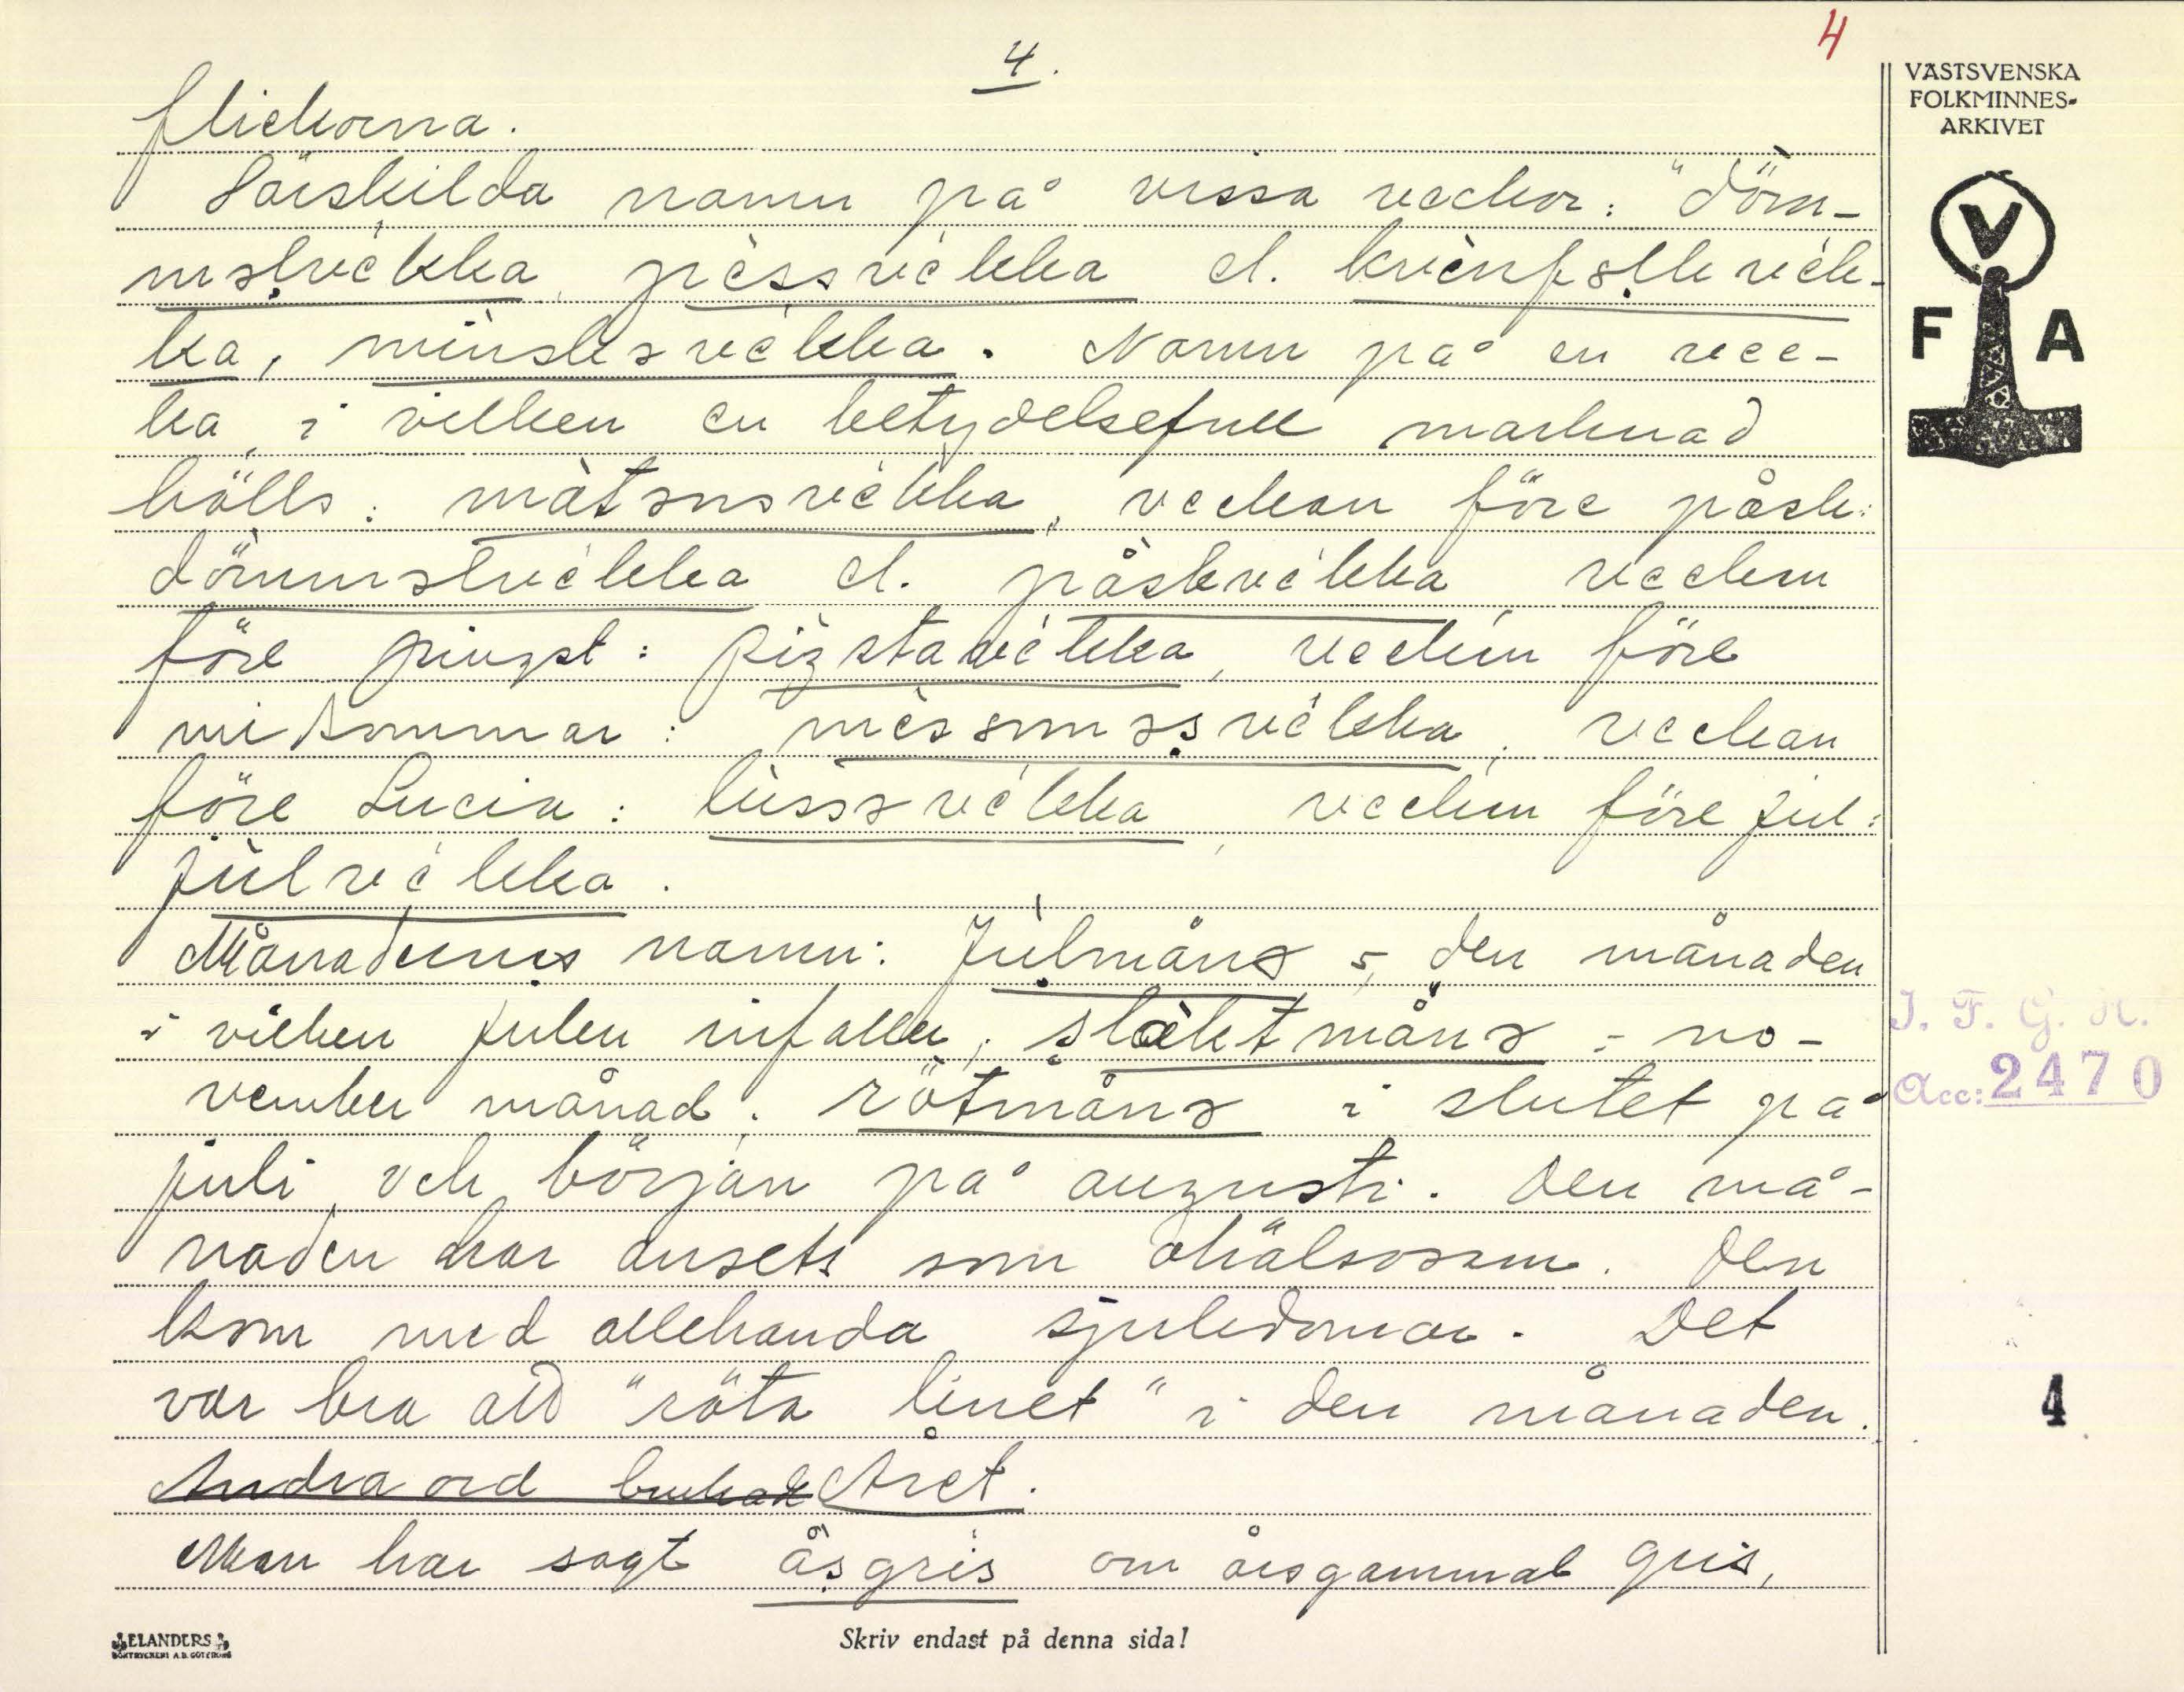 4.
4
flickorna.
Särskilda namn på vissa veckor: "döm-
məlvékka, pèssvékka el. kvènfəlkvék-
ka, mìuskəvékka. Namn på en vec-
ka, i vilken en betydelsefull marknad
hölls: màtsnsvékka, veckan före påsk:
dömməlvékka el. påskvékka veckan
före pingst: piŋstavékka, veckan före
midsommar: mèssəməsvékka, veckan
före Lucia: lùssəvékka, veckan före jul:
jùlvékka.
Månadernas namn: Jùlmånə, den månaden
i vilken julen infaller, slàktmånə = no-
vember månad. rötmånə i slutet på
juli och början på augusti. Den må-
naden har ansetts som ohälsosam. Den
kom med allehanda sjukdomar. Det
var bra att "röta linet" i den månaden.
Andra ord brukat Året.
Man har sagt åsgris om årsgammal gris,
VÄSTSVENSKA
FOLKMINNES-
ARKIVET
V
F A
I. F. G. H.
Acc: 2470
4
ELANDERS
BOKTRYCKERI A.B. GÖTEBORG
Skriv endast på denna sida!